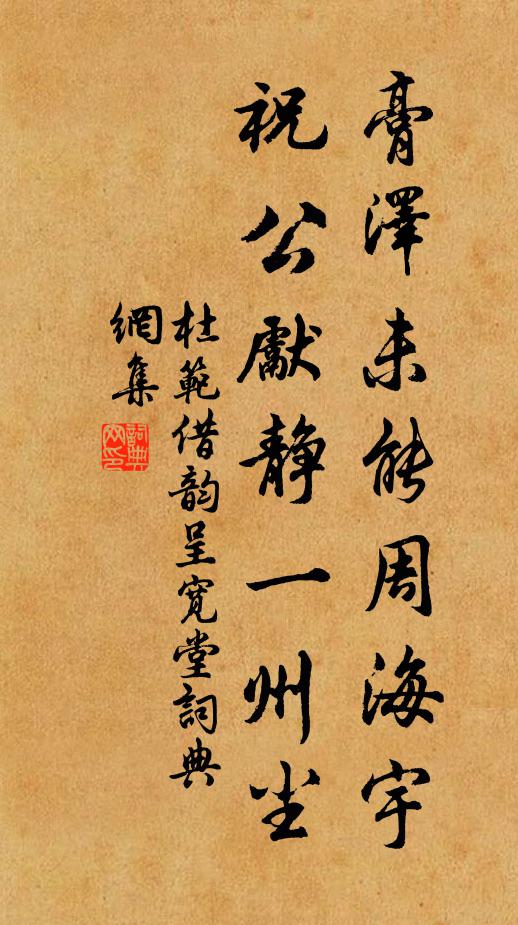 膏澤未能周海宇
祝公獻静一州尘
杜範借韵呈寬堂詞典
網集
詞典
网印